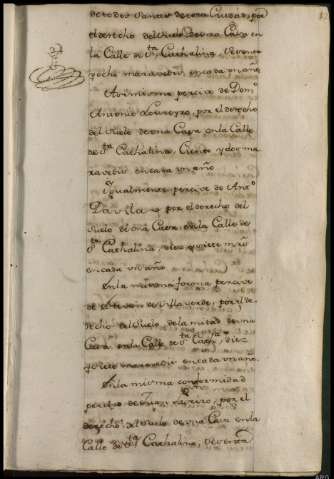 de todos Santos de esta Ciudad, por
el derecho del Suelo de una Casa en
la Calle de Sta. Cathalina, setenta
y ocho maravedis en cada un año
Assimismo percive de Domº
Antonio Loureyro, por el derecho
del Suelo de una Casa en la Calle
de Sta. Cathalina, Ciento y dos ma
ravedis en cada un año
Igualmente percive de Anº
Davila por el derecho del
Suelo de una Casa en la Calle de
Sta. Cathalina, mrs
en cada un año
En la misma forma percive
de Villaverde, por el de
recho del Suelo de la mitad de una
Casa en la Calle de Sta. Catha, diez
y siete maravedis en cada un año
En la misma conformidad
percive de por el
derecho del Suelo de una Casa en la
Calle de Sta. Cathalina, setenta